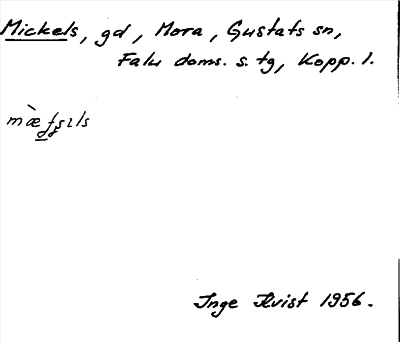 Mickels, gd, Mora, Gustafs sn,
Falu doms. s. tg, Kopp. l.
Inge Kvist 1956.